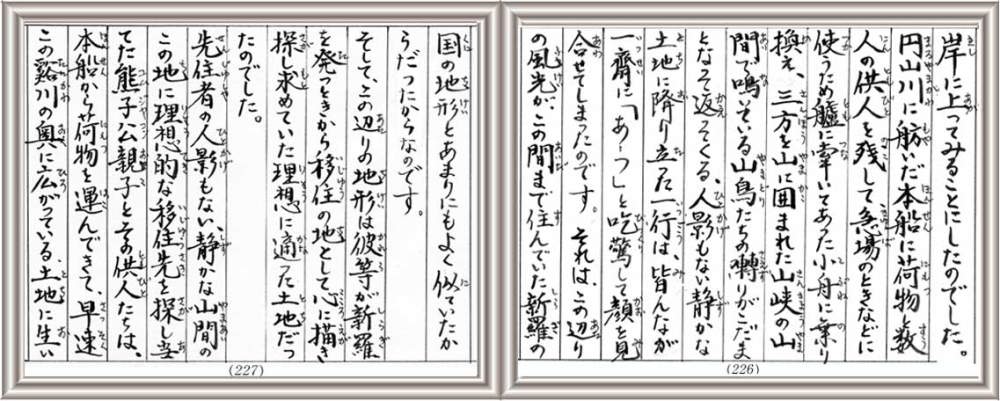 岸に上ってみることにしたのでした。
円山川に舫いだ本船に荷物と数
人の供人を残して急場のときなどに
使うため艫に牽いてあった小舟に乗り
換え、三方を山に囲まれた山峡の山
間で鳴いている山鳥たちの囀りがこだま
となって返ってくる、人影もない静かな
土地に降り立った一行は、皆んなが
一齊に「あっ」と吃驚して顔を見
合せてしまったのです。それは、この辺り
の風光が、この間まで住んでいた新羅の
(226)
国の地形とあまりにもよく似ていたか
らだったからなのです。
そして、この辺りの地形は彼等が新羅
を発つときから移住の地として心に描き
探し求めていた理想に適った土地だっ
たのでした。
先住者の人影もない静かな山間の
この地に理想的な移住先を探し当
てた熊子公親子とその供人たちは、
本船から荷物を運んできて、早速
この谿川の奥に広がっている、土地に生い
(227)